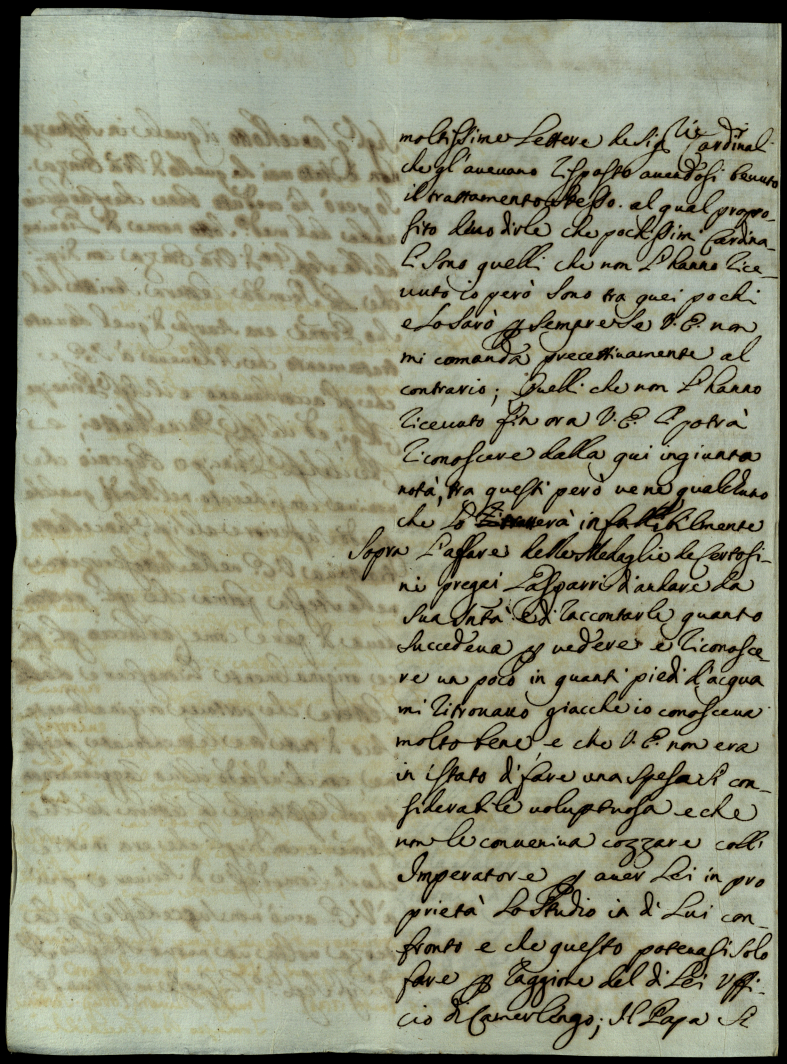 moltissime Lettere de Sig.ri Cardinali
che gl'avevano risposto avendosi tenuto
il trattamento stesso. al qual propo-
sito devo dirle che pochissimi Cardina-
li sono quelli che non l'hanno rice-
vuto io però sono tra quei pochi
e lo sarò p sempre se V.E. non
mi comanda precettivamente al
contrario; Quelli che non l'hanno
ricevuto fin ora V.E. li potrà
riconoscere dalla qui ingiunta
nota, tra questi però ve ne qualcuno
che lo infallibilmente
Sopra l'affare delle Medaglie de Certosi-
ni pregai Gasparri d'andare da
Sua Sntà e di raccontarle quanto
succedeva p vedere e riconosce-
re un poco in quanti piedi d'acqua
mi ritrovavo giacche io conosceva
molto bene e che V.E. non era
in istato di fare una spesa sì con-
siderabile voluptuosa e che
non le conveniva cozzare coll'
Imperatore p aver Lei in pro
prietà lo Studio in di Lui con-
fronto e che questo potevasi solo
fare p raggione del di Lei Uffi-
cio di Camerlingo; Il Papa si